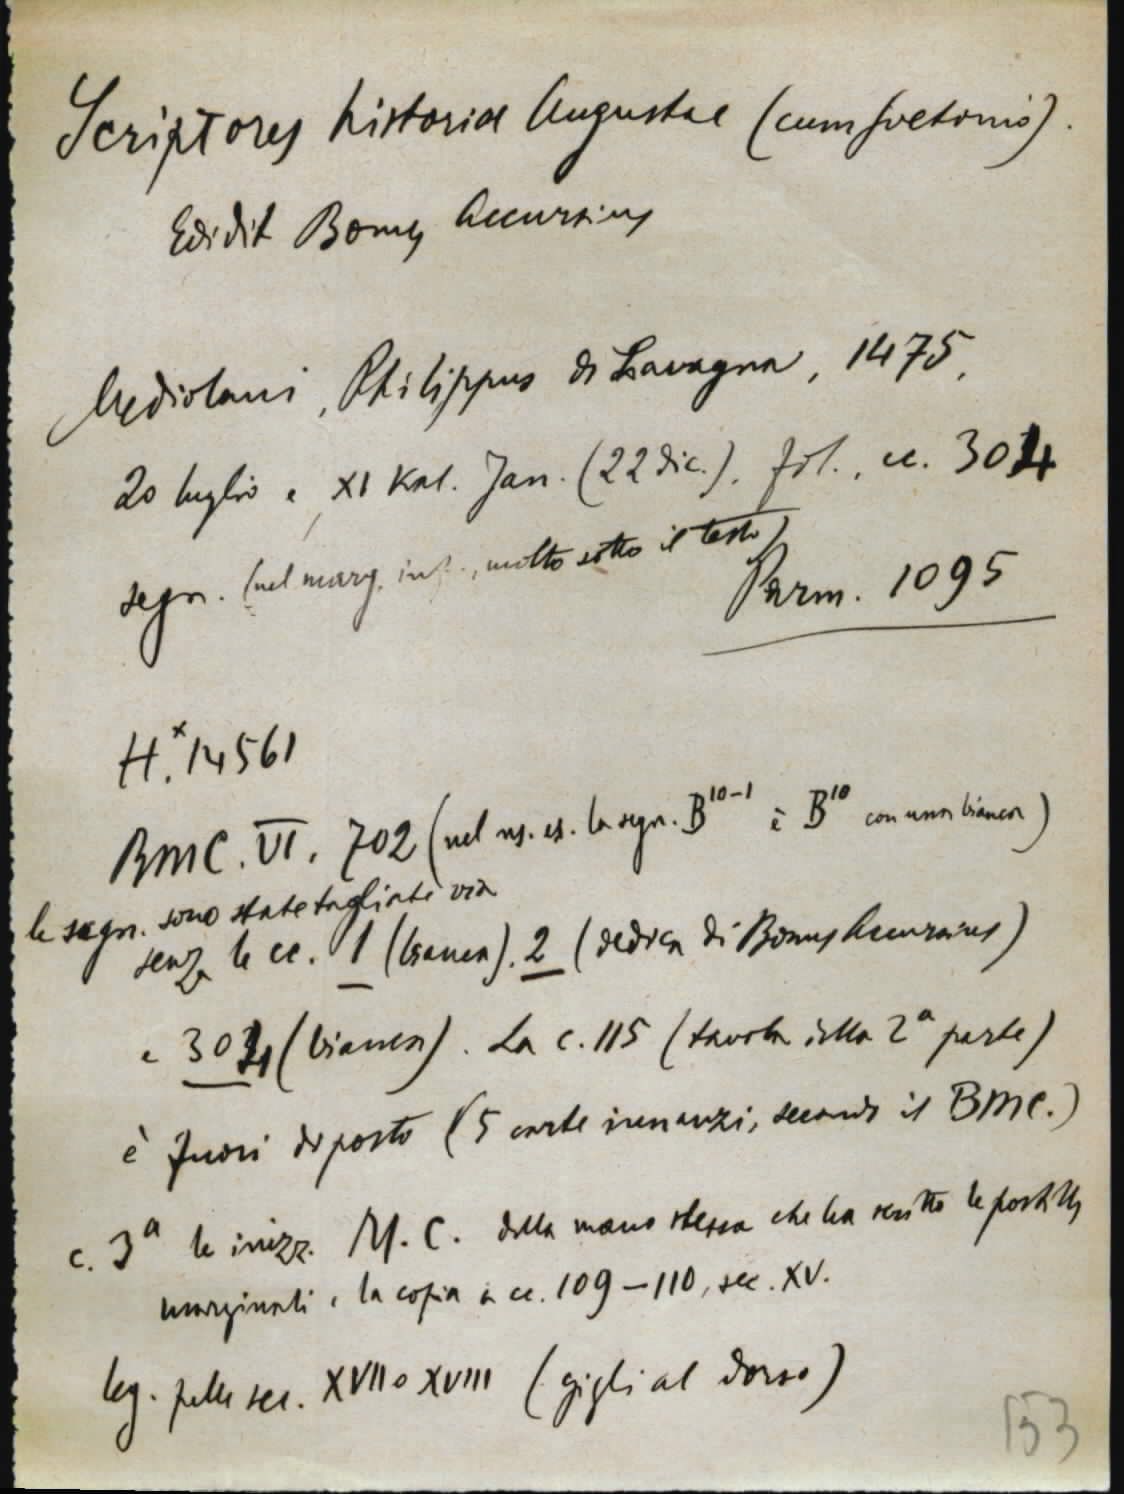 Scriptores historiae Augustae (cum Svetonio).
Edidit Bonus Accursius
Mediolani, Philippus di Lavagna, 1475,
20 luglio e XI Kal. Jan. (22 dic.), fol., cc. 304
segn. (nel marg. inf., molto sotto il testo)
Parm. 1095
H.x 14561
BMC. VI. 702 (nel ns. es. la segn. B10-1 è B10 con una bianca)
le segn. sono state tagliate via
senza le cc. 1 (bianca). 2 (dedica di Bonus Accursius)
e 304 (bianca). La c. 115 (tavola della 2a parte)
è fuori di posto (5 carte innanzi, secondo il BMC.)
c. 3a le inizz. M. C. della mano stessa che ha scritto le postille
marginali e la copia a cc. 109-110, sec. XV.
leg. pelle sec. XVII o XVIII (gigli al dorso)
153